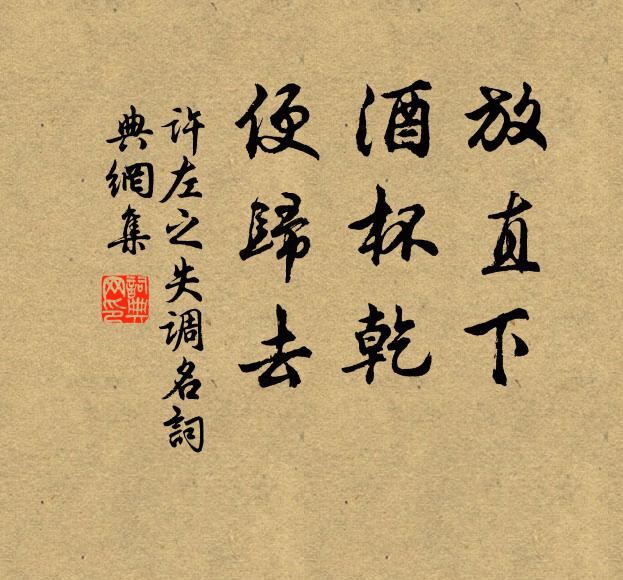 放直下
酒杯乾
便歸去
許左之失調名詞
典網集
詞典
网印